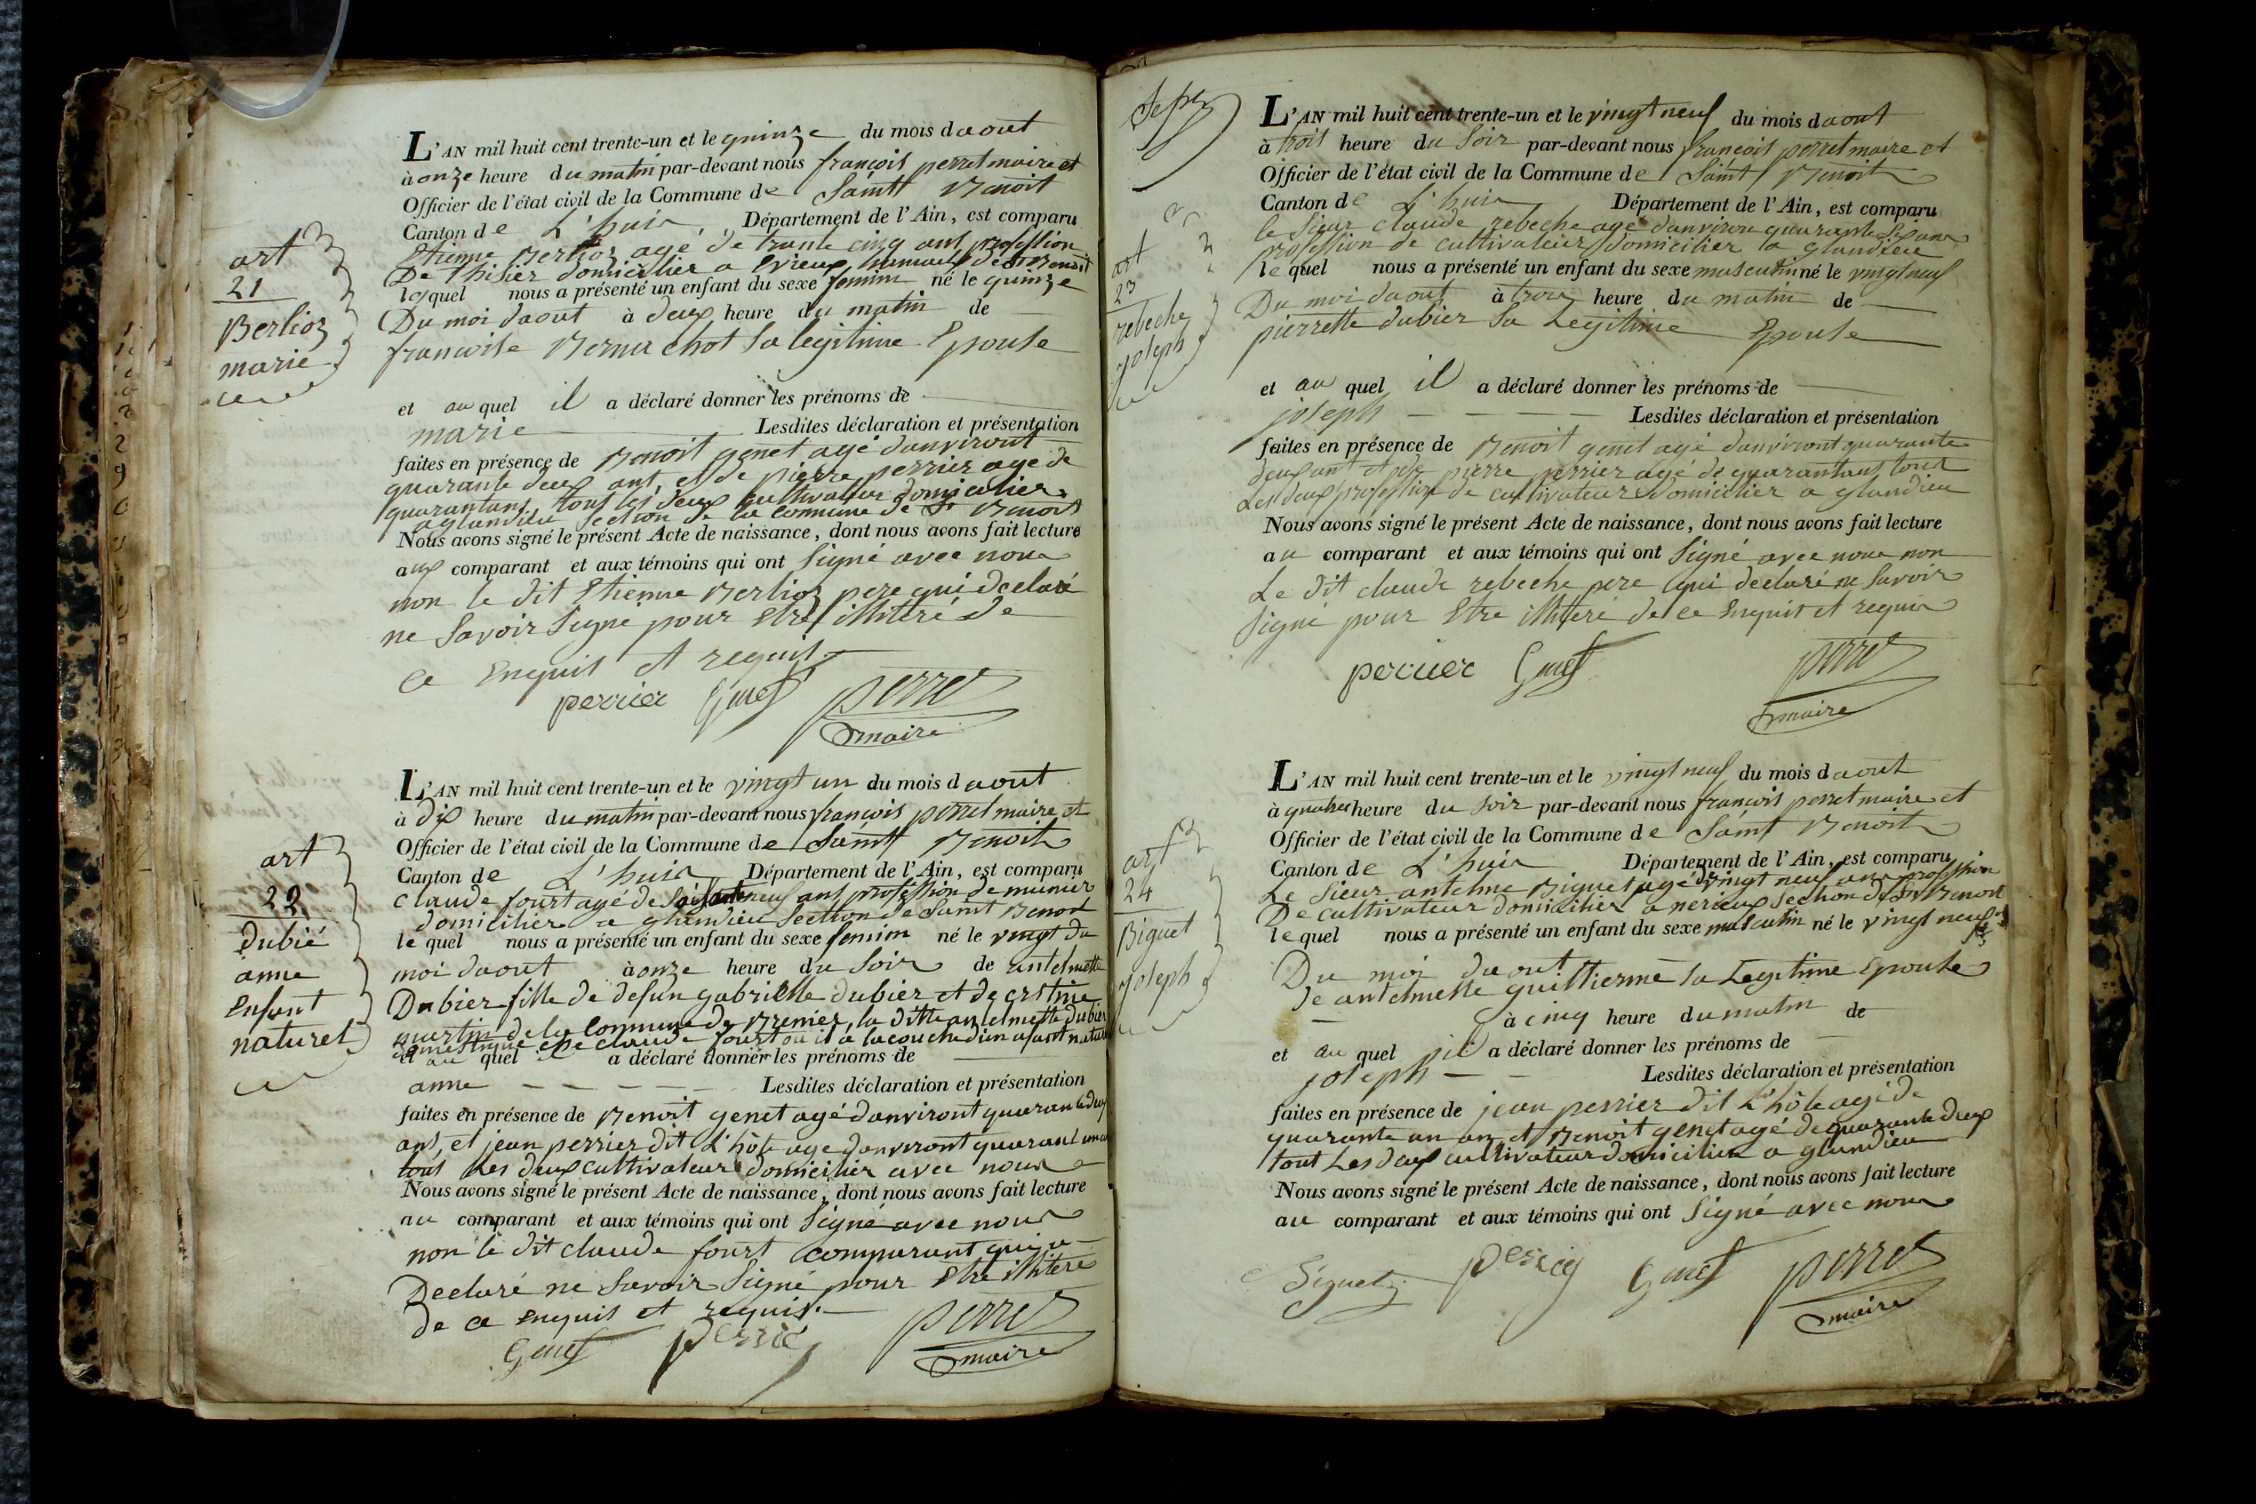 art
21
Berlioz
marie
L'AN mil huit cent trente-un et le quinze du mois daout
à onze heure du matin par-devant nous françois perret maire et
Officier de l'état civil de la Commune de Saintt Benoit
Canton de L'huis Département de l'Ain, est comparu
Etienne Berlioz agé de trante cinq ant profession
De thisier domicilier a Evieux hameau de St Benoit
lequel nous a présenté un enfant du sexe feminin né le quinze
Du moi daout à deux heure du matin de
francoise Bernuchot Sa legitime Epouse
et au quel il a déclaré donner les prénoms de
marie Lesdites déclaration et présentation
faites en présence de Benoit genet agé danviront
quarante deux ant, et de pierre perrier age de
quarantans tous les deux cultivateur domicilier
a glandieu Section de la commune de St Benoit
Nous avons signé le présent Acte de naissance, dont nous avons fait lecture
aux comparant et aux témoins qui ont Signé avec nous
non le dit Etienne Berlioz pere qui declaré
ne Savoir Signé pour Etre illitéré de
ce Enquis et requis
perrier Genet perret
maire
art
22
dubié
anne
Enfant
naturel
L'AN mil huit cent trente-un et le vingt un du mois daout
à dix heure du matin par-devant nous françois perret maire et
Officier de l'état civil de la Commune de Saintt Benoit
Canton de L'huis Département de l'Ain, est comparu
claude fourt agé de Soisante neuf ans profession de munier
domicilier a glandieu Section de Saint Benoit
lequel nous a présenté un enfant du sexe feminin né le vingt du
moi daout à onze heure du Soir de antelmette
Dubier fille de defun gabrielle dubier et de cristine
de la Commune de Brenier, la ditte antelmette dubier
claude fourt ou il a
et au quel il a déclaré donner les prénoms de
anne Lesdites déclaration et présentation
faites en présence de Benoit genet agé danviront quarante deux
ans, et jean perrier dit L'hôte age danviront quarant un
tout Les deux cultivateur domicilier avec nous
Nous avons signé le présent Acte de naissance, dont nous avons fait lecture
au comparant et aux témoins qui ont Signé avec nous
non le dit claude fourt comparant qui a
Declaré ne Savoir Signé pour Etre illitéré
de ce enquis et requis.
Genet perrié perret
maire
art
23
rebeche
joseph
L'AN mil huit cent trente-un et le vingt neuf du mois daout
à trois heure du Soir par-devant nous françois perret maire et
Officier de l'état civil de la Commune de Saint Benoit
Canton de L'huis Département de l'Ain, est comparu
le Sieur claude rebeche agé danviron quarante Six ans
profession de cultivateur domicilier a glandieu
lequel nous a présenté un enfant du sexe masculin né le vingt neuf
Du moi daout à trois heure du matin de
pierrette dubier Sa Legitime Epouse
et au quel il a déclaré donner les prénoms de
joseph Lesdites déclaration et présentation
faites en présence de Benoit genet agé danviront quarante
deux ant et de pierre perrier agé de quarantans tout
Les deux profession de cultivateur domicilier a glandieu
Nous avons signé le présent Acte de naissance, dont nous avons fait lecture
au comparant et aux témoins qui ont Signé avec nous non
Le dit claude rebeche pere qui declaré ne Savoir
Signé pour Etre illitéré de ce Enquis et requis
perrier Genet perret
maire
art
24
Biguet
joseph
L'AN mil huit cent trente-un et le vingt neuf du mois daout
à quatre heure du Soir par-devant nous françois perret maire et
Officier de l'état civil de la Commune de Saint Benoit
Canton de L'huis Département de l'Ain, est comparu
Le Sieur antelme Biguet agé de vingt neuf ans profession
De cultivateur domicilier a nerieux Section de St Benoit
lequel nous a présenté un enfant du sexe masculin né le vingt neuf
Du moi daout
de antelmette guillierme Sa Legitime Epouse
à cinq heure du matin de
et au quel il a déclaré donner les prénoms de
joseph Lesdites déclaration et présentation
faites en présence de jean perrier dit L'hôte agé de
quarante un an et Benoit genet agé de quarante deux
tout Les deux cultivateur domicilier a glandieu
Nous avons signé le présent Acte de naissance, dont nous avons fait lecture
au comparant et aux témoins qui ont Signé avec nous
Biguet Genet perret
maire